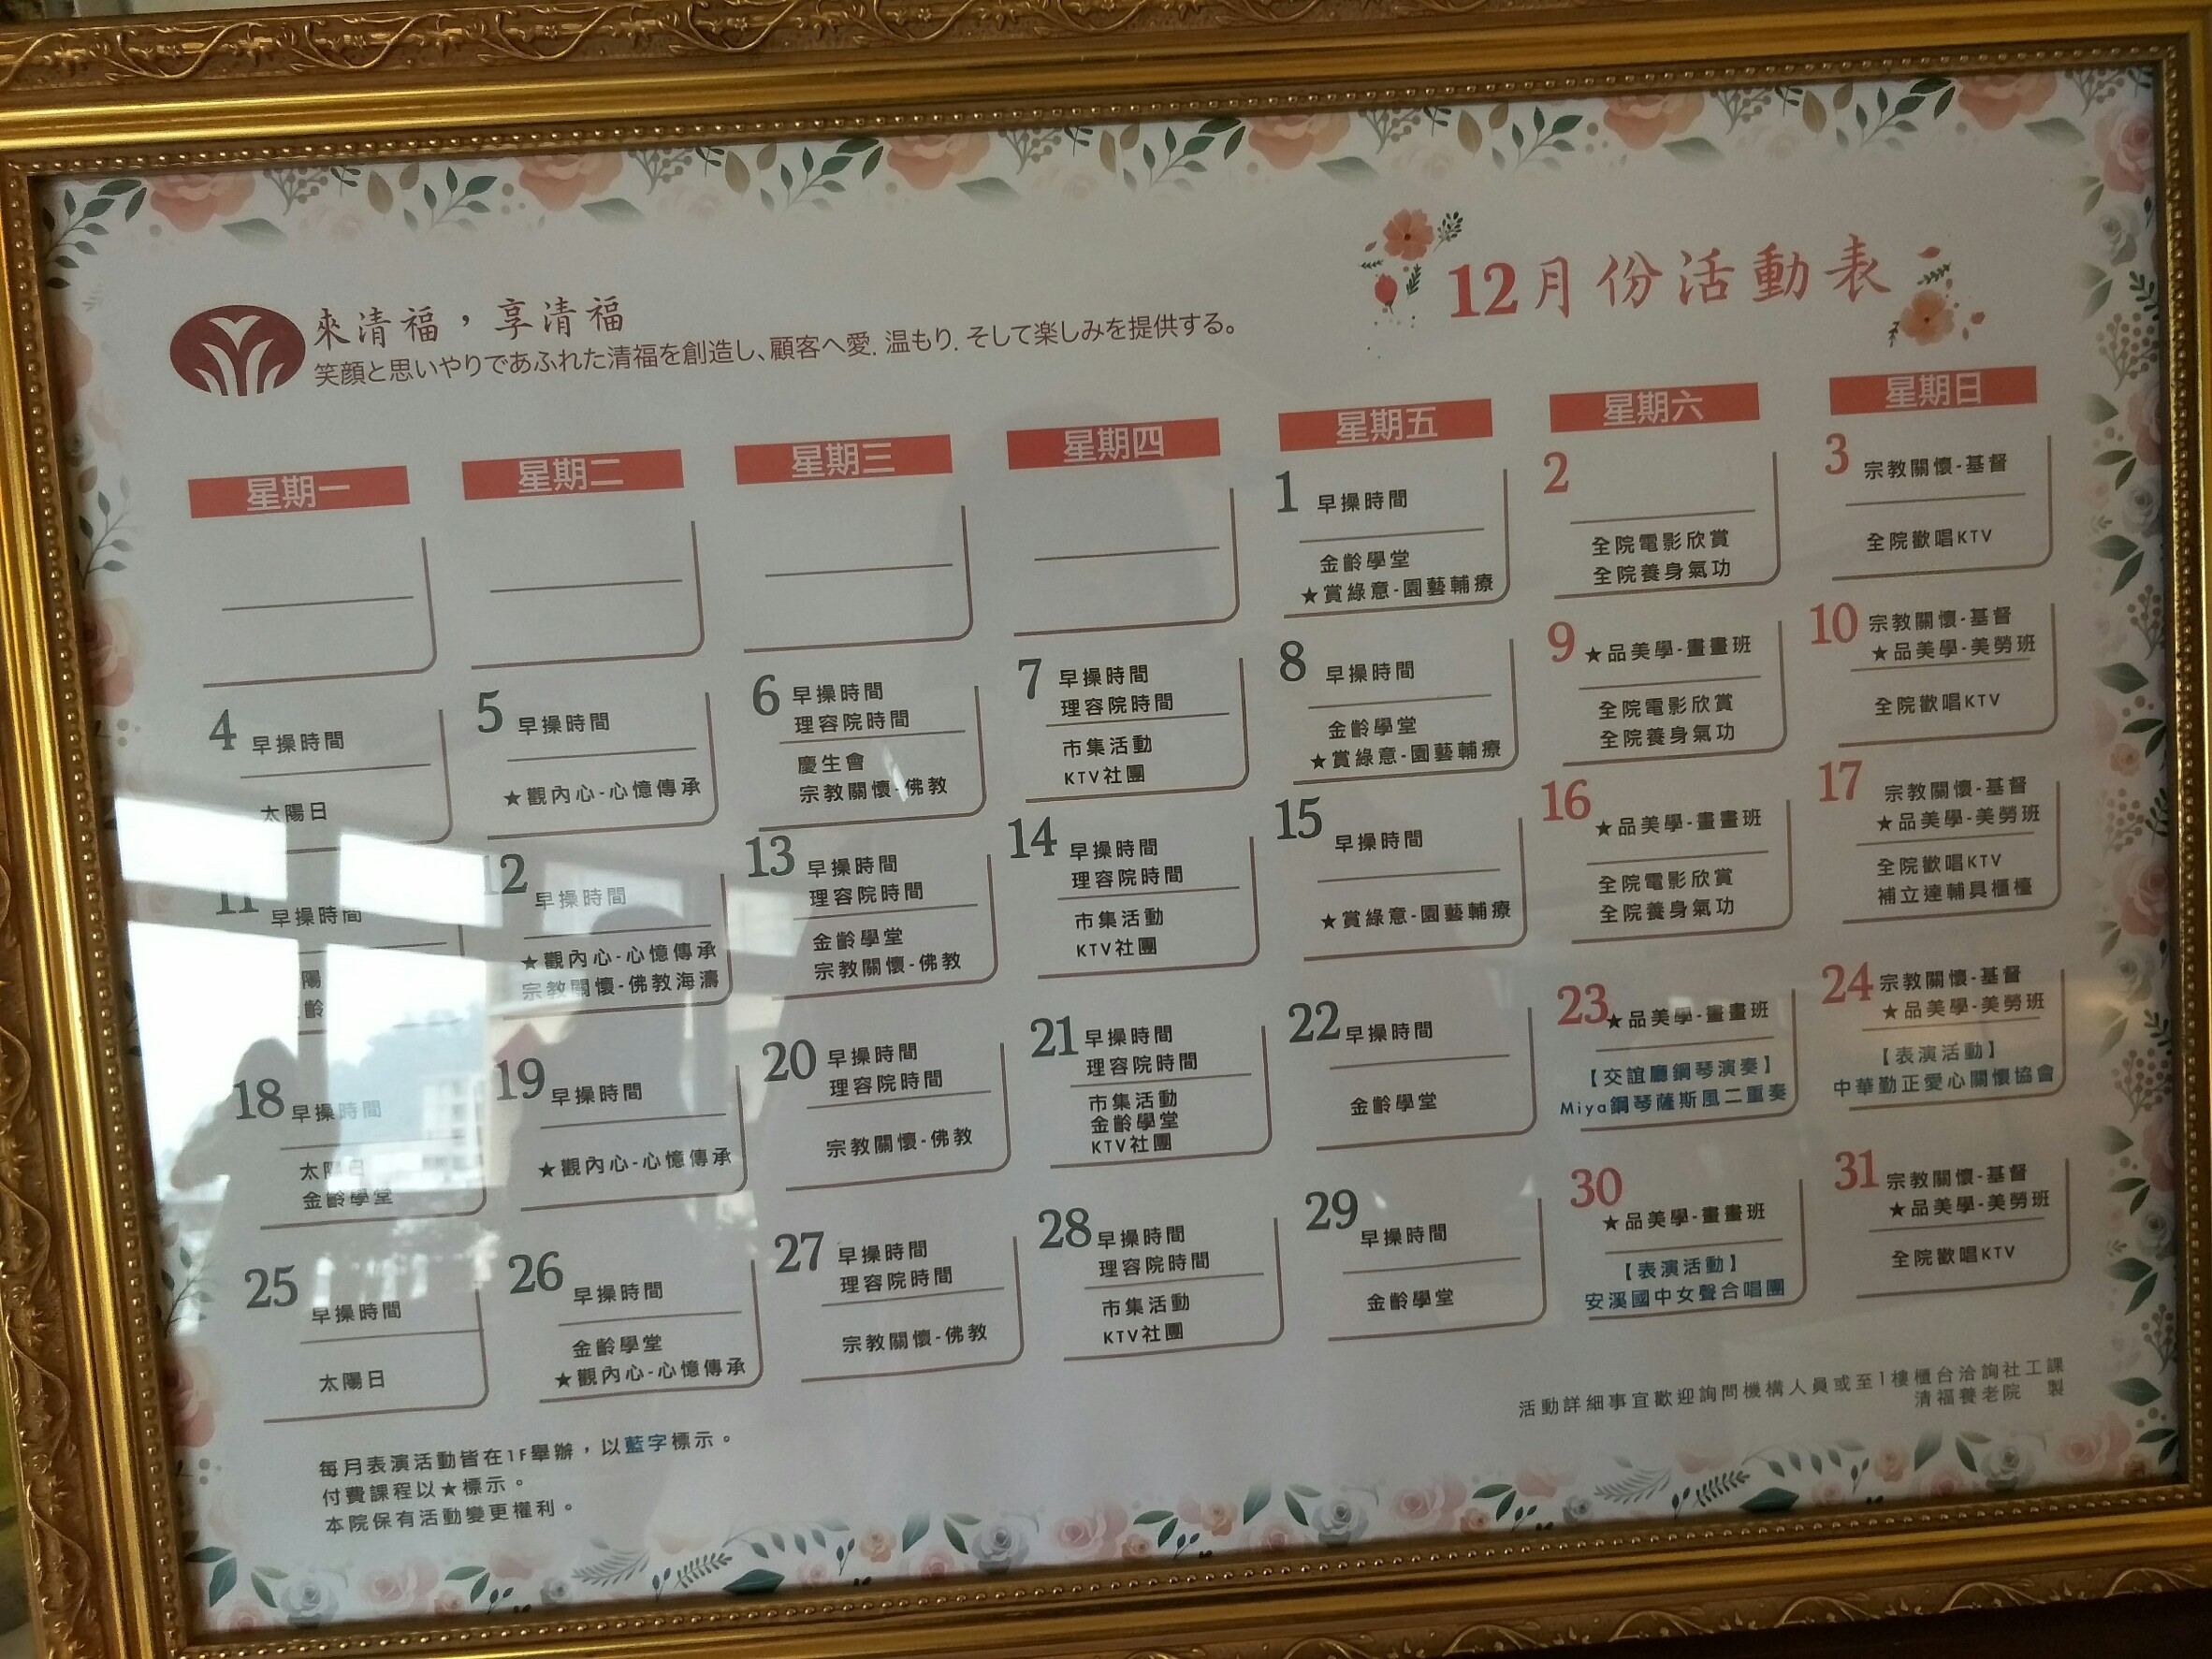 來清福，享清福
笑顔と思いやりであふれた清福を創造し、顧客へ愛. 温もり. そして楽しみを提供する。
12月份活動表
星期一
星期二
星期三
星期四
星期五
星期六
星期日
1
早操時間
金齡學堂
★賞綠意-園藝輔療
2
全院電影欣賞
全院養身氣功
3
宗教關懷-基督
全院歡唱KTV
4
早操時間
太陽日
5
早操時間
★觀內心-心憶傳承
6
早操時間
理容院時間
慶生會
宗教關懷-佛教
7
早操時間
理容院時間
市集活動
KTV社團
8
早操時間
金齡學堂
★賞綠意-園藝輔療
9
★品美學-畫畫班
全院電影欣賞
全院養身氣功
10
宗教關懷-基督
★品美學-美勞班
全院歡唱KTV
11
早操時間
陽
齡
12
早操時間
★觀內心-心憶傳承
宗教關懷-佛教海濤
13
早操時間
理容院時間
金齡學堂
宗教關懷-佛教
14
早操時間
理容院時間
市集活動
KTV社團
15
早操時間
★賞綠意-園藝輔療
16
★品美學-畫畫班
全院電影欣賞
全院養身氣功
17
宗教關懷-基督
★品美學-美勞班
全院歡唱KTV
補立達輔具櫃檯
18
早操時間
太陽日
金齡學堂
19
早操時間
★觀內心-心憶傳承
20
早操時間
理容院時間
宗教關懷-佛教
21
早操時間
理容院時間
市集活動
金齡學堂
KTV社團
22
早操時間
金齡學堂
23
★品美學-畫畫班
【交誼廳鋼琴演奏】
Miya鋼琴薩斯風二重奏
24
宗教關懷-基督
★品美學-美勞班
【表演活動】
中華勤正愛心關懷協會
25
早操時間
太陽日
26
早操時間
金齡學堂
★觀內心-心憶傳承
27
早操時間
理容院時間
宗教關懷-佛教
28
早操時間
理容院時間
市集活動
KTV社團
29
早操時間
金齡學堂
30
★品美學-畫畫班
【表演活動】
安溪國中女聲合唱團
31
宗教關懷-基督
★品美學-美勞班
全院歡唱KTV
活動詳細事宜歡迎詢問機構人員或至1樓櫃台洽詢社工課
清福養老院 製
每月表演活動皆在1F舉辦，以藍字標示。
付費課程以★標示。
本院保有活動變更權利。